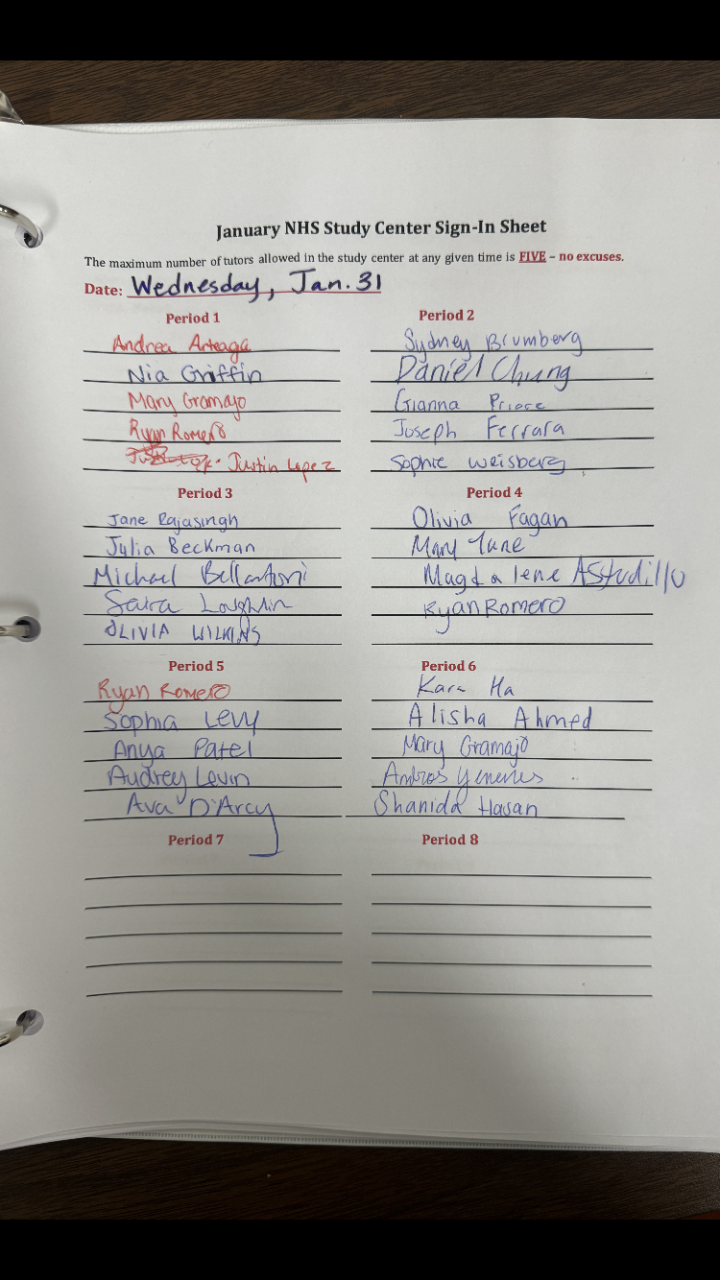 January NHS Study Center Sign-In Sheet
The maximum number of tutors allowed in the study center at any given time is FIVE – no excuses.
Date: Wednesday, Jan. 31
Period 1
Andrea Arteaga
Nia Griffin
Mary Gramajo
Ryan Romero
Justin Lopez
Period 2
Sydney Brumberg
Daniel Chung
Gianna
Joseph Ferrara
Sophie Weisberg
Period 3
Jane Rajasingh
Julia Beckman
Michael Bellantoni
Saira Loughlin
OLIVIA WILKINS
Period 4
Olivia Fagan
Mary Tune
Magdalene Astudillo
Ryan Romero
Period 5
Ryan Romero
Sophia Levy
Anya Patel
Audrey Levin
Ava D'Arcy
Period 6
Kara Ha
Alisha Ahmed
Mary Gramajo
Shanida Hasan
Period 7
Period 8